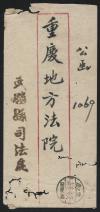 公函
1069
重慶地方法院
縣司法處